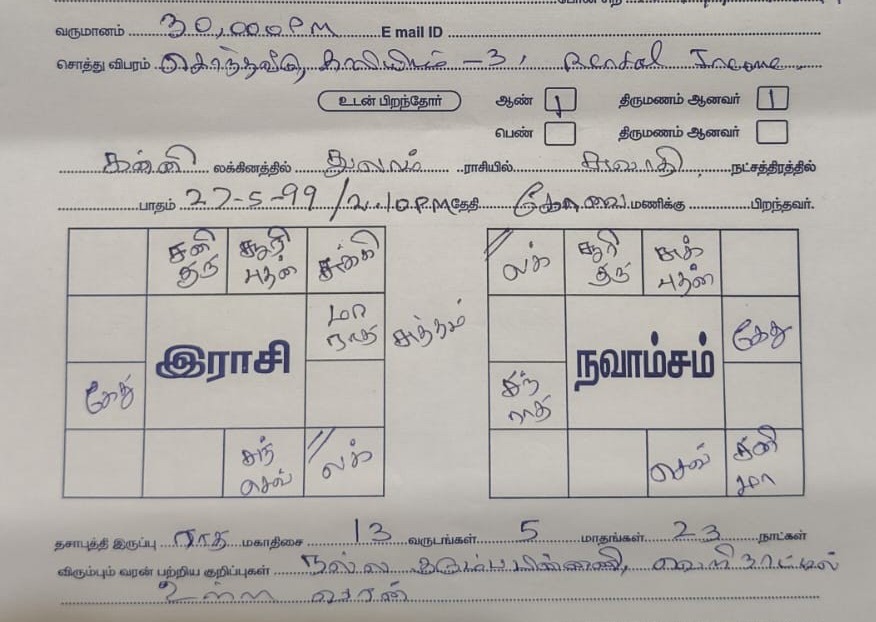 வருமானம் 30,000 PM E mail ID
சொத்து விபரம் சொந்தவீடு, காலியிடம் - 3, Rental Income
உடன் பிறந்தோர் ஆண் 1 திருமணம் ஆனவர் 1
பெண் திருமணம் ஆனவர்
கன்னி லக்கினத்தில் துலாம் ராசியில் சுவாதி நட்சத்திரத்தில்
பாதம் 27-5-99 / 2.10 P.M தேதி கோவை மணிக்கு பிறந்தவர்.
சனி குரு சூரி புதன் சுக்கி
மா ராகு சுத்தம்
இராசி
கேது
சந் செவ் லக்
லக் சூரி குரு சுக் புதன்
கேது
நவாம்சம்
சந் ராகு
செவ் சனி மா
தசாபுத்தி இருப்பு ராகு மகாதிசை 13 வருடங்கள் 5 மாதங்கள் 23 நாட்கள்
விரும்பும் வரன் பற்றிய குறிப்புகள் நல்ல குடும்பபின்னணி, வெளிநாட்டில்
உள்ள வரன்